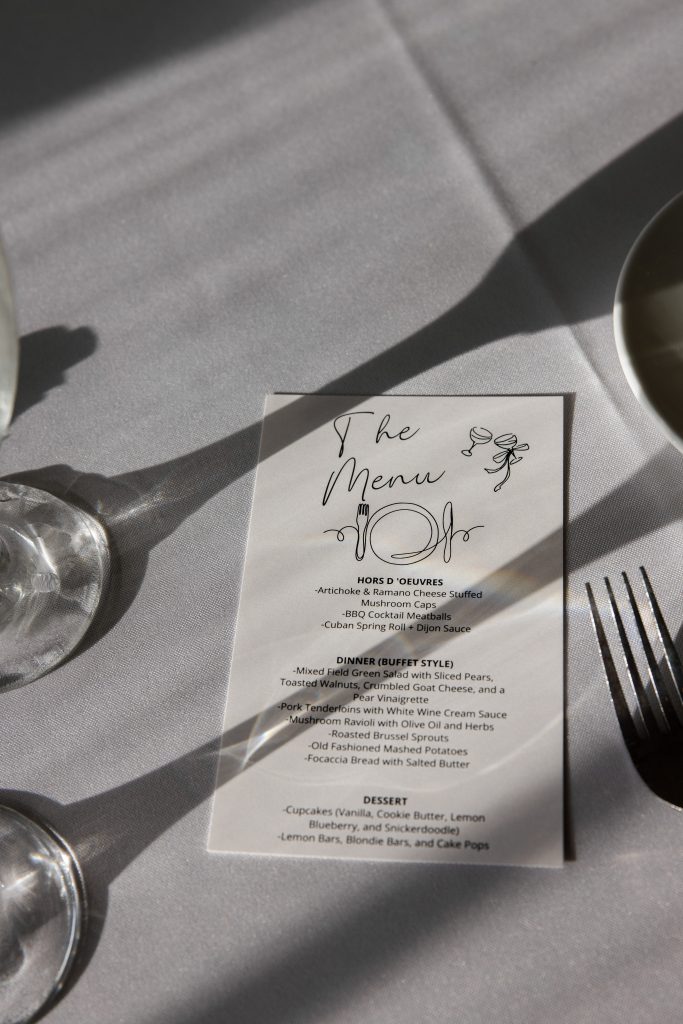 The
Menu
HORS D 'OEUVRES
-Artichoke & Ramano Cheese Stuffed
Mushroom Caps
-BBQ Cocktail Meatballs
-Cuban Spring Roll + Dijon Sauce
DINNER (BUFFET STYLE)
-Mixed Field Green Salad with Sliced Pears,
Toasted Walnuts, Crumbled Goat Cheese, and a
Pear Vinaigrette
-Pork Tenderloins with White Wine Cream Sauce
-Mushroom Ravioli with Olive Oil and Herbs
-Roasted Brussel Sprouts
-Old Fashioned Mashed Potatoes
-Focaccia Bread with Salted Butter
DESSERT
-Cupcakes (Vanilla, Cookie Butter, Lemon
Blueberry, and Snickerdoodle)
-Lemon Bars, Blondie Bars, and Cake Pops